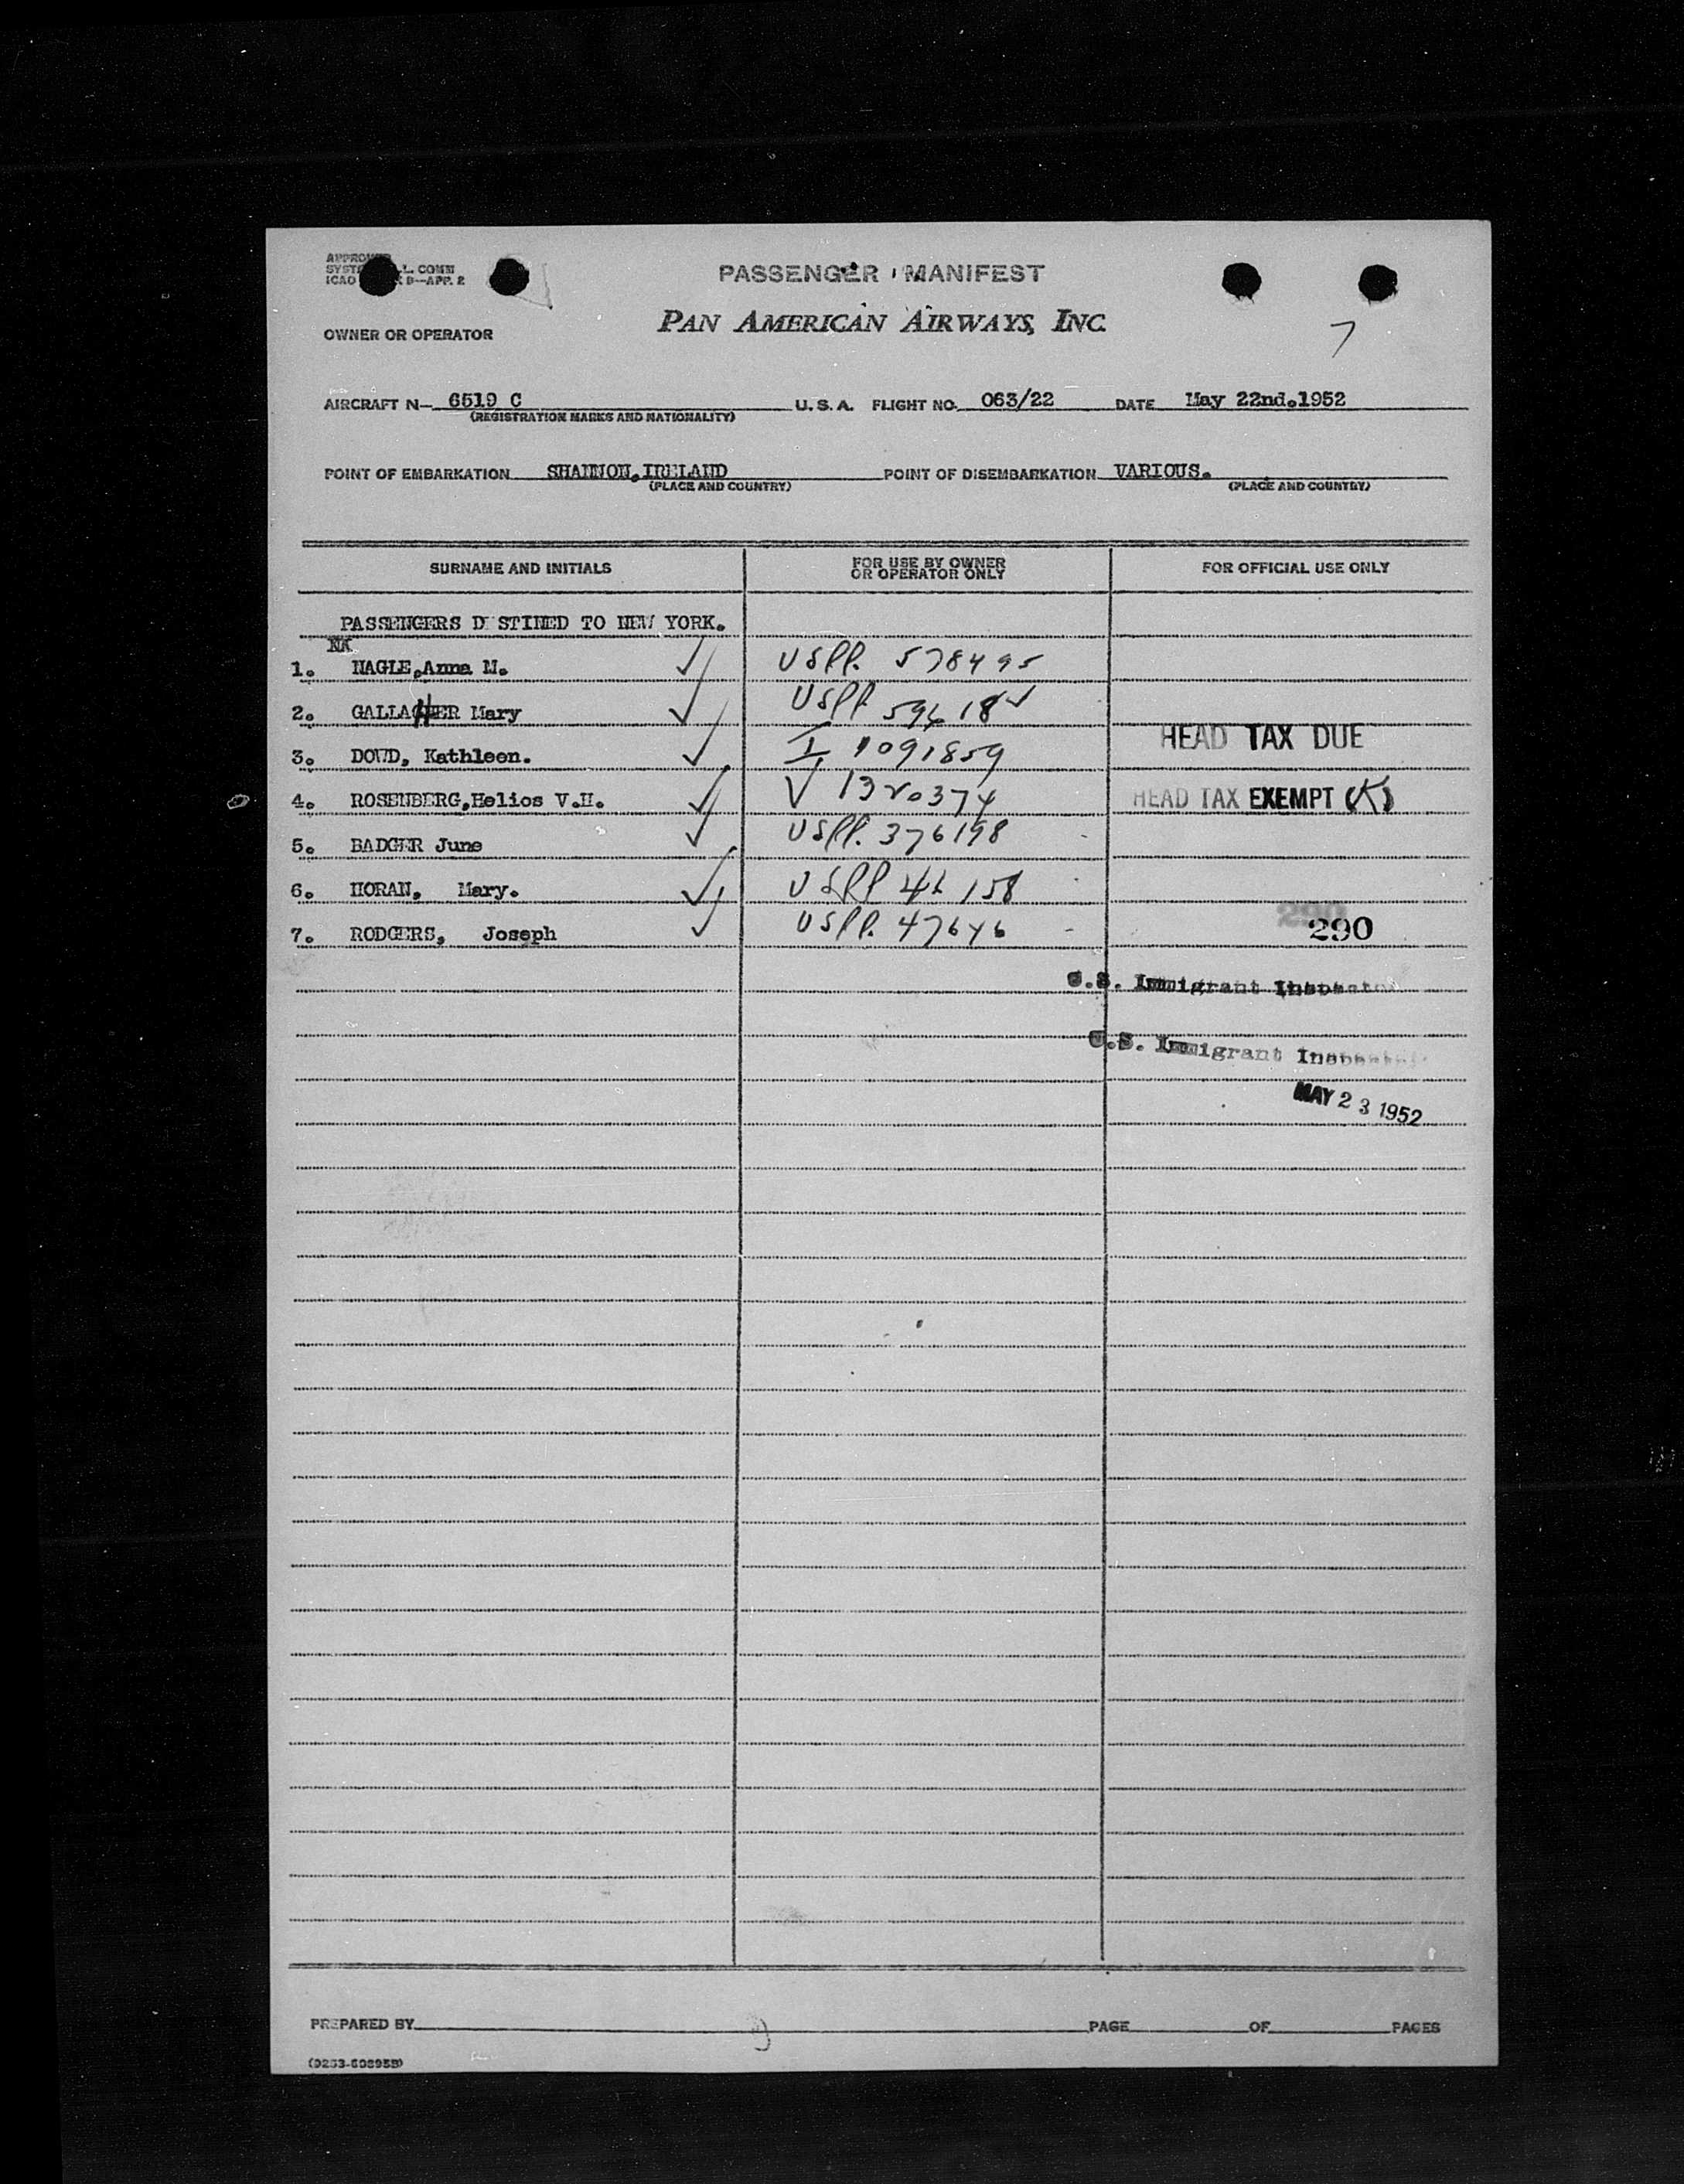 PASSENGER MANIFEST
PAN AMERICAN AIRWAYS, INC.
7
OWNER OR OPERATOR
AIRCRAFT N— 6519 C U. S. A. FLIGHT NO. 063/22 DATE May 22nd.1952
(REGISTRATION MARKS AND NATIONALITY)
POINT OF EMBARKATION SHANNON,IRELAND POINT OF DISEMBARKATION VARIOUS.
(PLACE AND COUNTRY) (PLACE AND COUNTRY)
SURNAME AND INITIALS FOR USE BY OWNER OR OPERATOR ONLY FOR OFFICIAL USE ONLY
PASSENGERS D STINED TO NEW YORK.
1. NAGLE,Anna M. ✓ USPP. 578495
2. GALLAGHER Mary ✓ USPP
3. DOWD, Kathleen. ✓ I 1091859 HEAD TAX DUE
4. ROSENBERG,Helios V.H. ✓ V 1320374 HEAD TAX EXEMPT (K)
5. BADGER June ✓ USPP. 376198
6. HORAN, Mary. ✓ USPP 158
7. RODGERS, Joseph ✓ USPP. 47646 290
U.S. Immigrant Inspector
U.S. Immigrant Inspector
MAY 23 1952
PREPARED BY PAGE OF PAGES